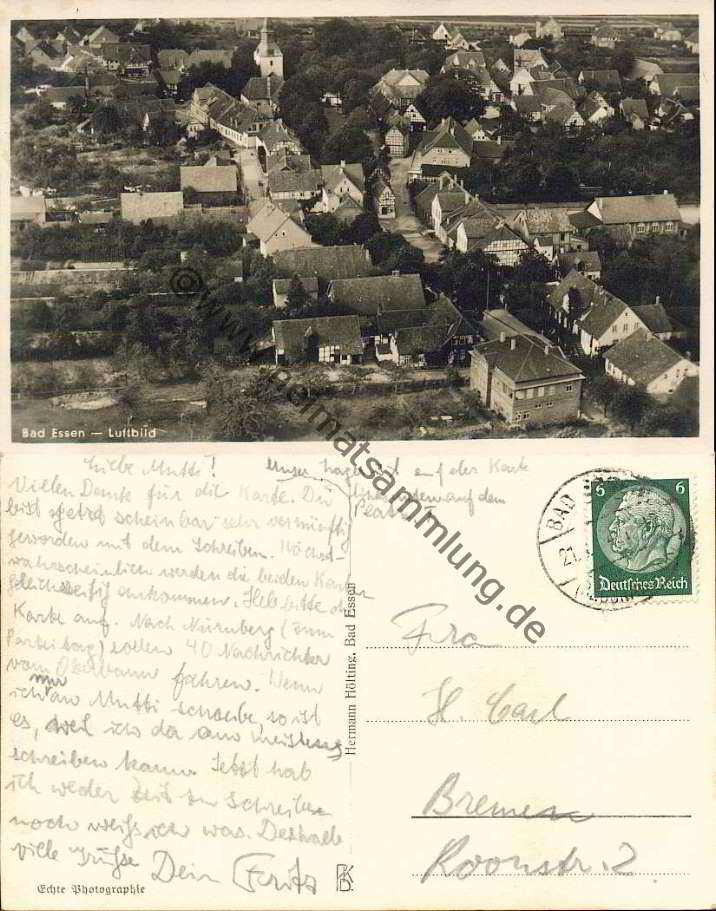 Bad Essen — Luftbild
© www.heimatsammlung.de
Liebe Mutti!
Unser Lager ist auf der Karte
auf dem
Vielen Dank für die Karte. Du
bist jetzt scheinbar sehr vernünftig
geworden mit dem Schreiben. Höchst-
wahrscheinlich werden die beiden Karten
gleichzeitig ankommen. Heb bitte die
Karte auf. Nach Nürnberg (zum
Parteitag) sollen 40 Nachrichter
vom Oberbann fahren. Wenn
ich nur an Mutti schreibe, so ist
es, weil ich da am meisten
schreiben kann. Jetzt hab
ich weder Zeit zu schreiben
noch weiß ich was. Deshalb
viele Grüße Dein Fritz
Echte Photographie
Hermann Hölting, Bad Essen
BAD
21.
6 6
Deutsches Reich
Fra
H. Carl
Bremen
Roonstr. 2